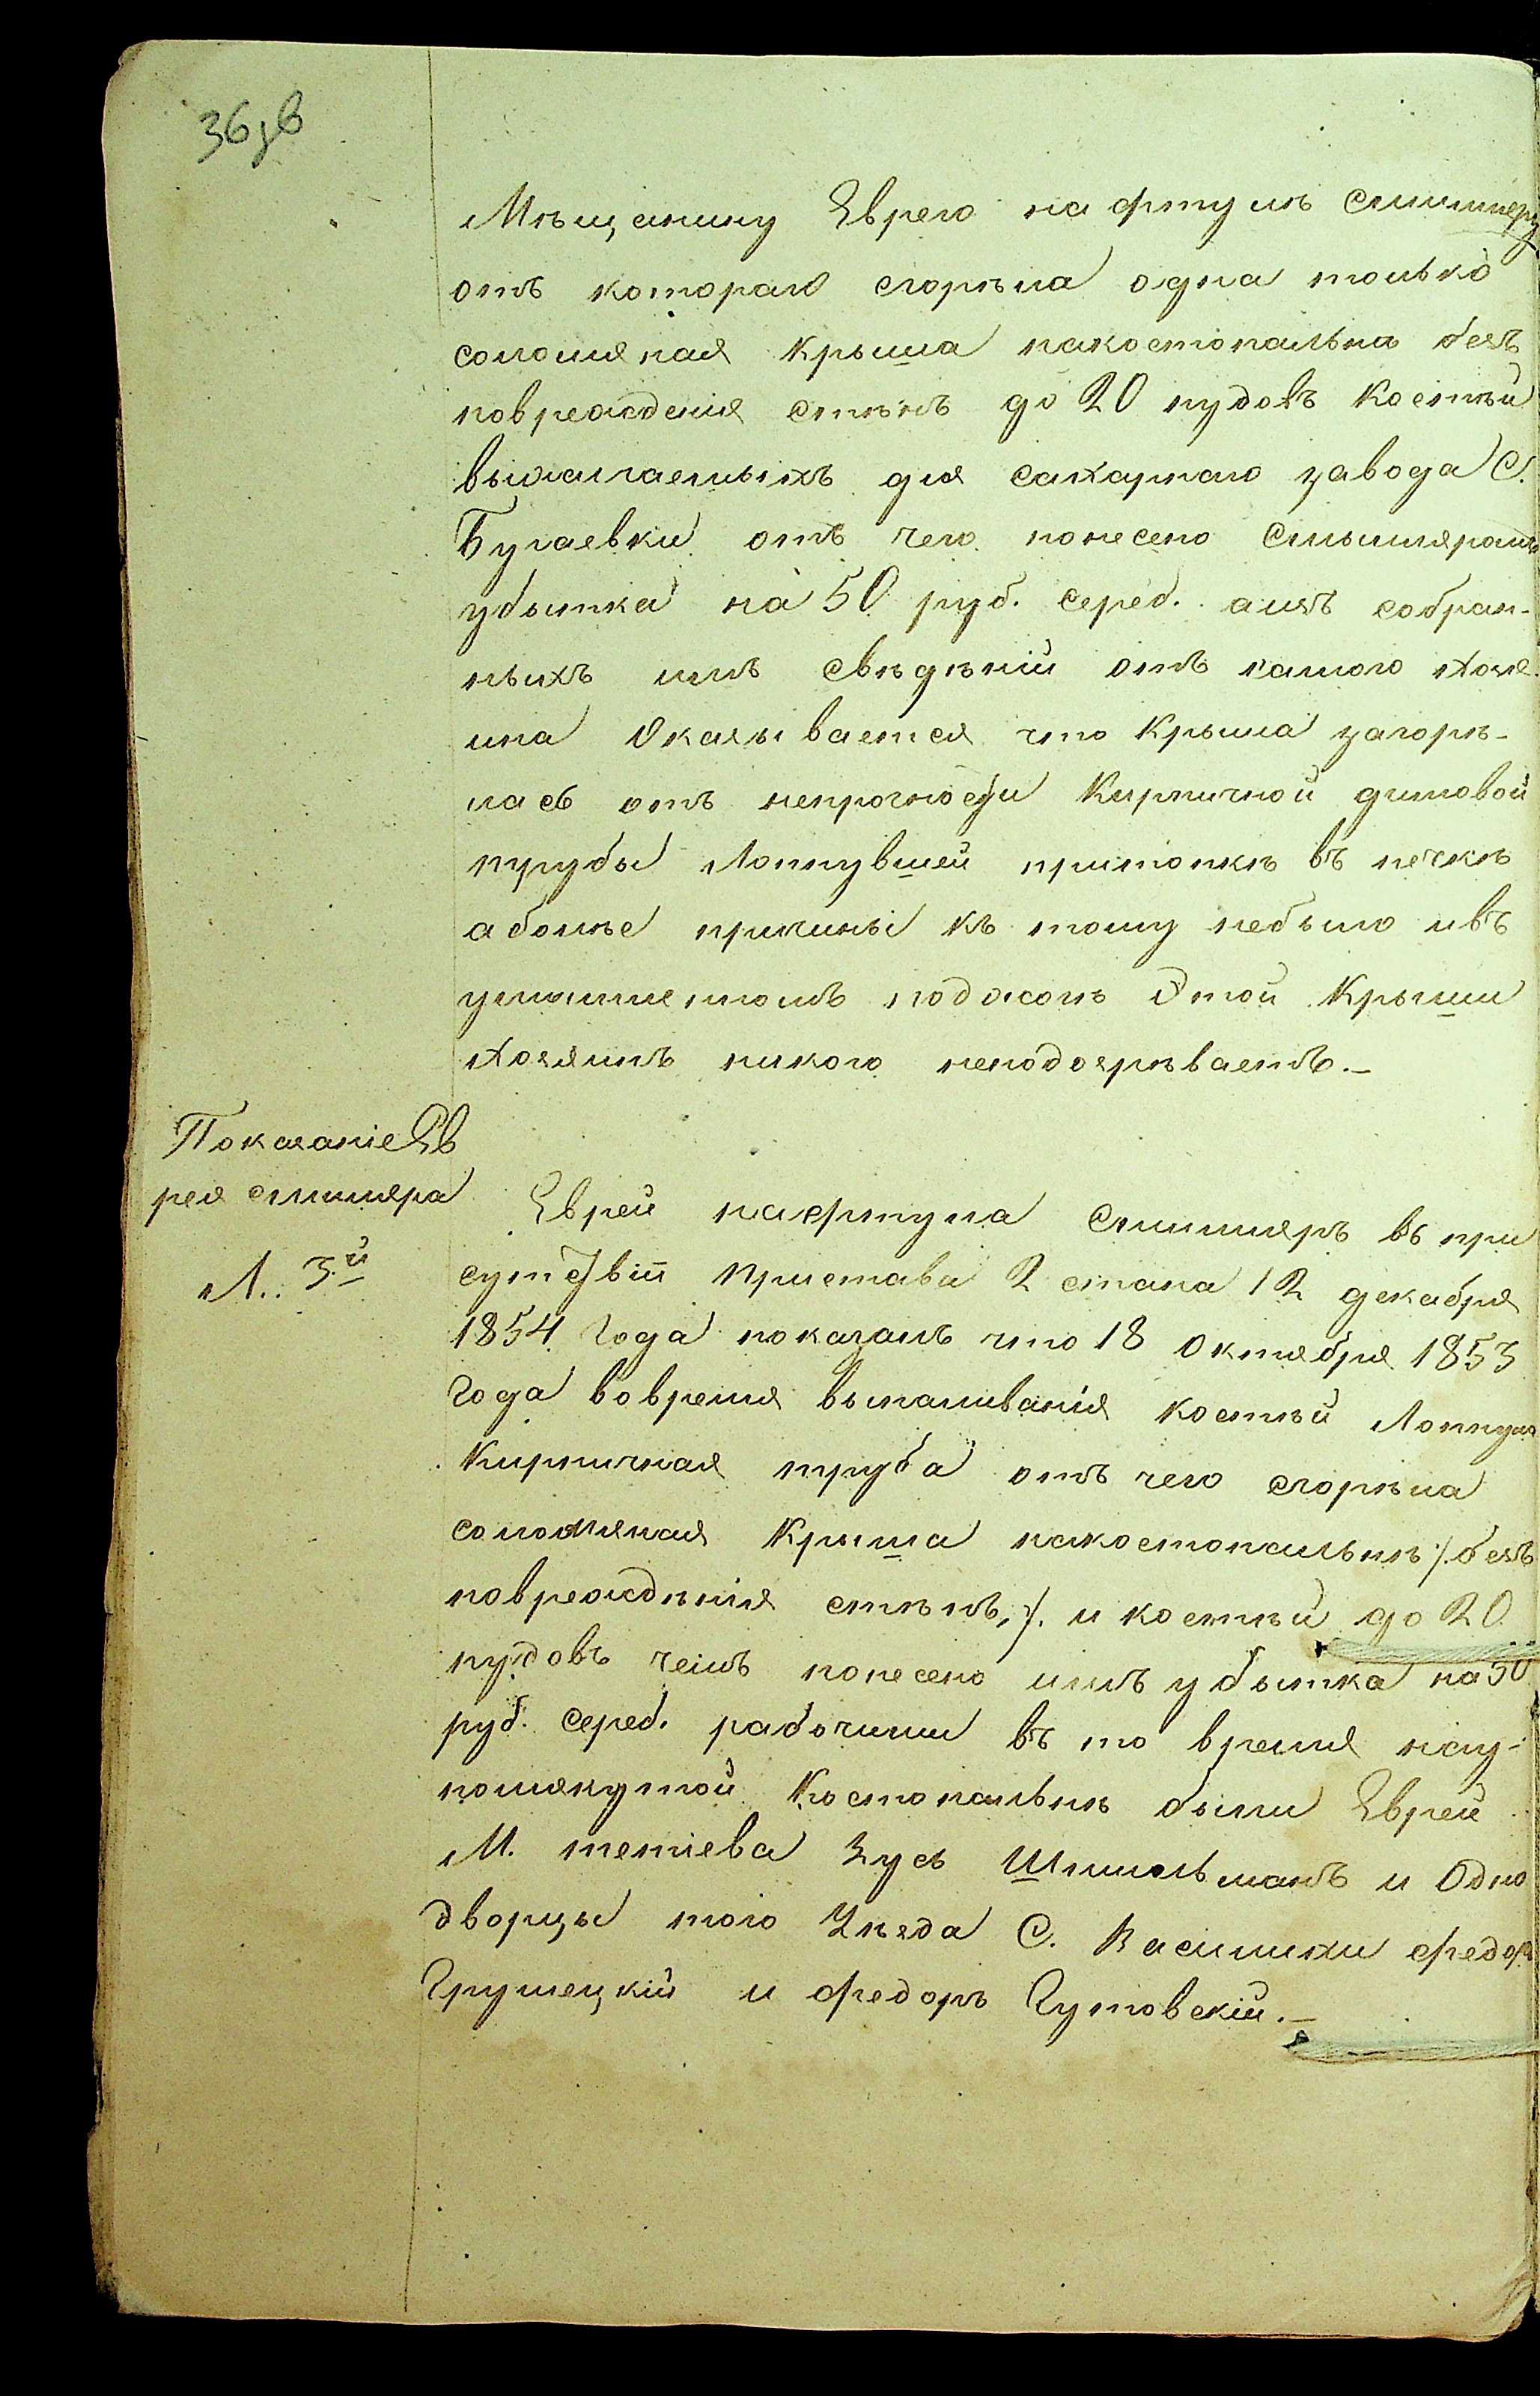 36зв
Мѣщанину Еврею нафтулѣ слимперу
отъ котораго сгорѣла одна только
соломяная Крыша накостопальна безъ
поврежденія стѣнъ до 20 пудовъ Костѣй
выжигаемыхъ для сахарнаго завода С.
Бугаевки отъ чего понесено
убытка на 50 руб. сереб. аизъ собран-
ныхъ имъ свѣдѣній отъ самого хозя
ина Оказывается что Крыша загорѣ-
лась отъ непрочности Кирпичной димовой
трубы Лопнувшей притопкѣ въ печкѣ
а болѣе причины къ тому небыло ивъ
умышленомъ поджогѣ Этой Крыши
хозяинъ никого неподозрѣваетъ.-
Показаніе Ев
рея слимпера
Л. 3й
Еврей нафтула слимперъ въ при
сутствіи Пристава 2 стана 12 декабря
1854 Года показалъ что 18 Октября 1853
Года вовремя выпаливанія костѣй Лопнула
Кирпичная труба отъ чего сгорѣла
соломяная Крыша накостопальнѣ ./. безъ
поврежденія стѣнъ ./. и костѣй до 20
пудовъ чемъ понесено имъ убытка на 50
руб. сереб. рабочими въ то время нау-
помянутой Костопальнѣ были Еврей
М. тетіева Зусь Шпильманъ и Одно
дворцы того Уѣзда С. Василихи федоръ
Грушецкій и федоръ Гутовскій.-